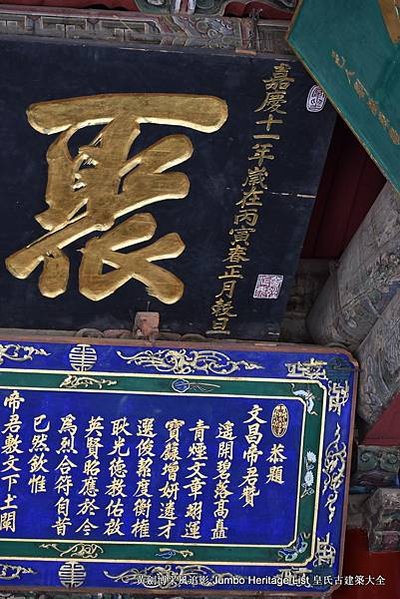 聚
嘉慶十一年歲在丙寅春正月穀旦
文昌帝君贊
恭題
遙開碧落高矗
青煙文章翊運
寶籙增妍遴才
選俊絜度衡權
耿光德教佑啟
英賢昭應於今
為烈合符自昔
已然欽惟
帝君敷文下土闡
Jumbo Heritage List 皇氏古建築大全